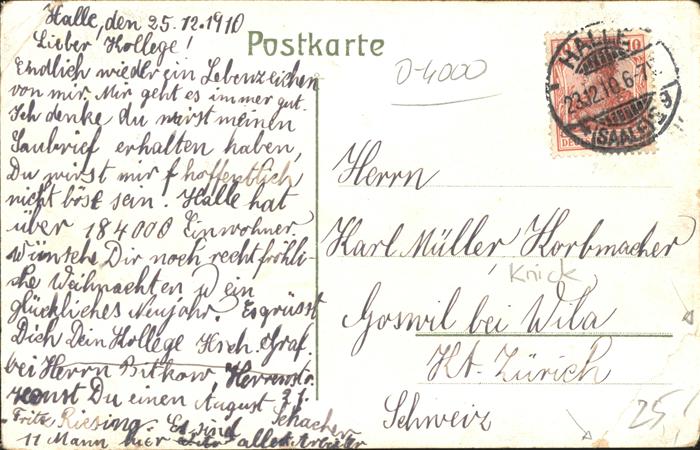 Halle, den 25.12.1910
Lieber Kollege!
Endlich wieder ein Lebenzeichen
von mir. Mir geht es immer gut.
Ich denke du wirst meinen
Saubrief erhalten haben,
Du wirst mir f hoffentlich
nicht böse sein. Halle hat
über 184000 Einwohner.
Wünsche Dir noch recht fröhli-
che Weihnachten u ein
glückliches Neujahr. Es grüsst
Dich Dein Kollege Hch. Graf.
bei Herrn Bitkow Herrenstr.
21.
kennst Du einen August Schacher
Fritz Riesing. Es sind
11 Mann hier alles Arbeiter
Postkarte
0-4000
HALLE
23.12.10.6-7
(SAALE)
10
Herrn
Karl Müller, Korbmacher
Knick
Goswil bei Wila
Kt. Zürich
Schweiz
25